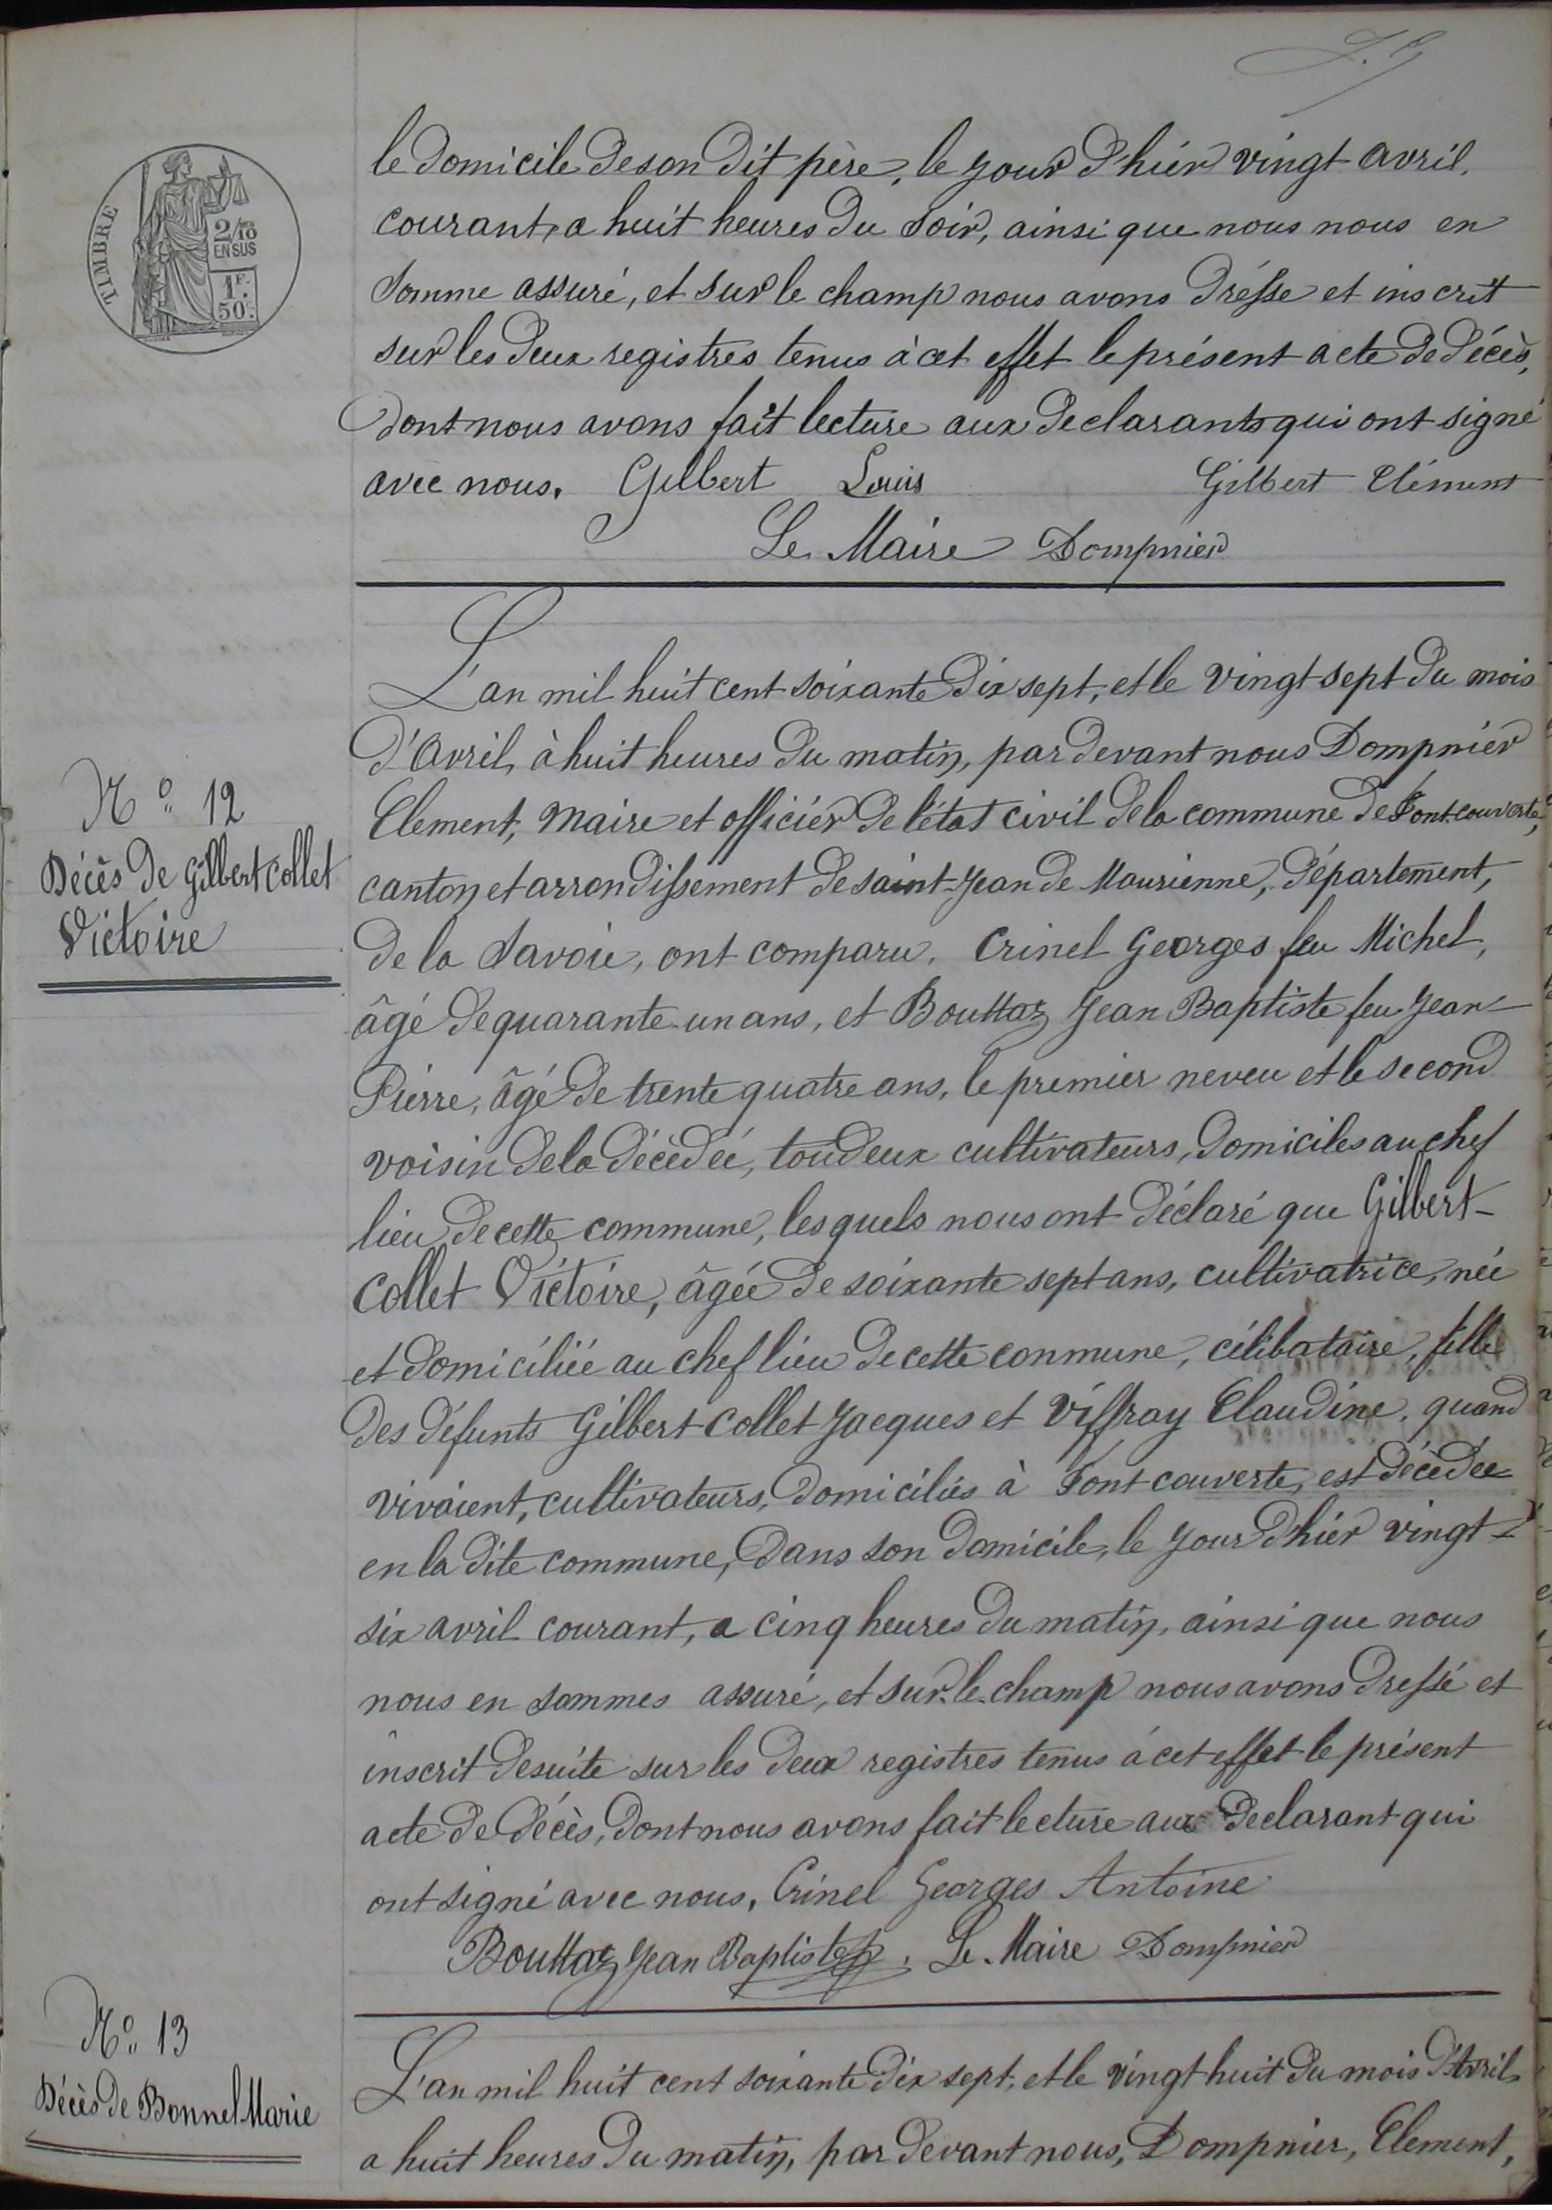 le domicile de son dit père, le jour d'hiér vingt avril,
courant, a huit heures du soir, ainsi que nous nous en
somme assuré, et sur le champ nous avons drésse et inscrit
sur les deux registres tenus à cet effet le présent acte de décès,
dont nous avons fait lecture aux declarants qui ont signé
avec nous. Gilbert Louis Gilbert Clément
Le Maire Dompnier
TIMBRE
2/10
EN SUS
1F.
50c.
N° 12
Décès de Gilbert collet
Victoire
L'an mil huit cent soixante dix sept, et le vingt sept du mois
d'Avril, à huit heures du matin, par devant nous Dompnier
Clement, Maire et officiér de l'état civil de la commune de Fontcouverte,
canton et arrondissement de saint-Jean de Maurienne, département,
de la Savoie, ont comparu. Crinel Georges feu Michel,
âgé de quarante un ans, et Bouttaz Jean Baptiste feu Jean-
Pierre, âgé de trente quatre ans, le premier neveu et le second
voisin de la décédée, tou deux cultivateurs, domiciles au chef
lieu de cette commune, lesquels nous ont déclaré que Gilbert-
Collet Victoire, âgée de soixante sept ans, cultivatrice, née
et domiciliée au chef lieu de cette conmune, célibataire, fille
des défunts Gilbert-Collet Jacques et Viffray Claudine, quand
vivaient, cultivateurs, domiciliés à Fontcouverte, est décédée
en la dite commune, dans son domicile, le jour d'hiér vingt-
six avril courant, a cinq heures du matin, ainsi que nous
nous en sommes assuré, et sur-le-champ nous avons dressé et
inscrit desuite sur les deux registres tenus à cet effet le présent
acte de décès, dont nous avons fait lecture aux declarant qui
ont signé avec nous. Crinel Georges Antoine
Bouttaz Jean Baptiste. Le Maire Dompnier
N° 13
Décès de Bonnel Marie
L'an mil huit cent soixante dix sept, et le vingt huit du mois d'Avril
a huit heures du matin, par devant nous, Dompnier, Clement,